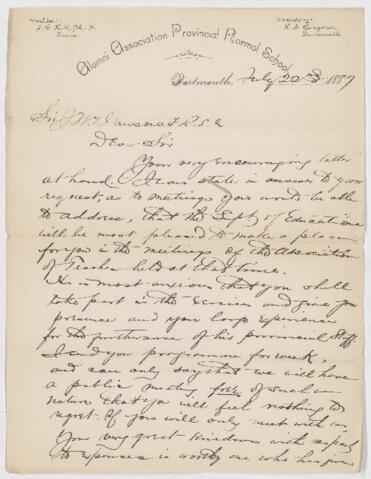 President:
Truro
Secretary:
Dartmouth
Alumni Association Provincial Normal School
Dartmouth, July 22nd 1887
Sir J W Dawson F. R. S. &
Dear Sir
Your very encouraging letter
at hand. I can state in answer to your
request, as to meetings you would be able
to address, that the Supt of Education
will be most pleased to make a place
for you in the meetings of the Association
of Teachers held at that time.
He is most anxious that you shall
take part in the Exercises and give your
presence and your large experience
for the furtherance of his provincial Staff
I send you programme for week,
and can only say that we will have
a public meeting free of such a
nature that you will feel nothing to
regret. If you will only meet with us.
Your very great kindness with respect
to expenses is worthy one who has given